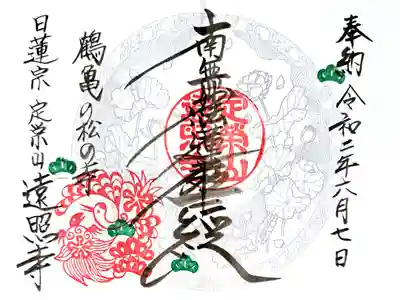 奉納 令和二年八月七日
南無妙法蓮華経
鶴亀の松の寺
日蓮宗 定栄山 遠照寺